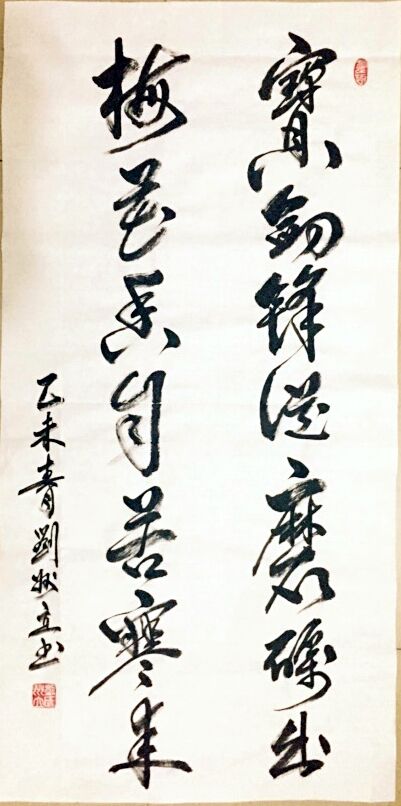 寶劒鋒從磨礪出
梅花香自苦寒來
乙未春劉立书